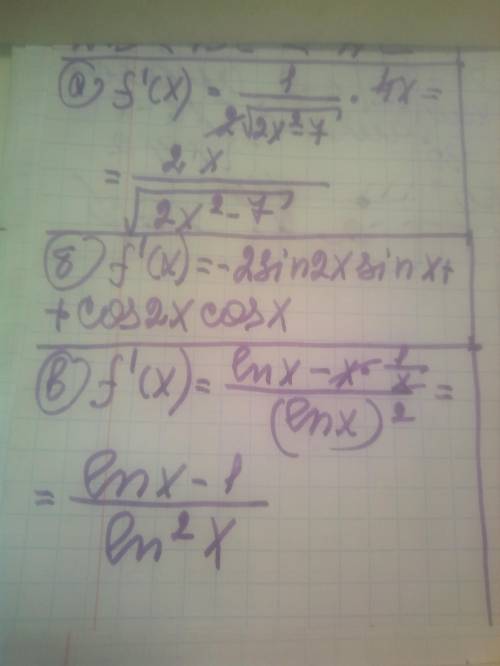 а) f'(x) = 1/(2√(2x²-7)) · 4x =
= 2x/√(2x²-7)
б) f'(x) = -2sin2x sinx +
+ cos2x cosx
в) f'(x) = (lnx - x · 1/x)/(lnx)² =
= (lnx - 1)/ln²x